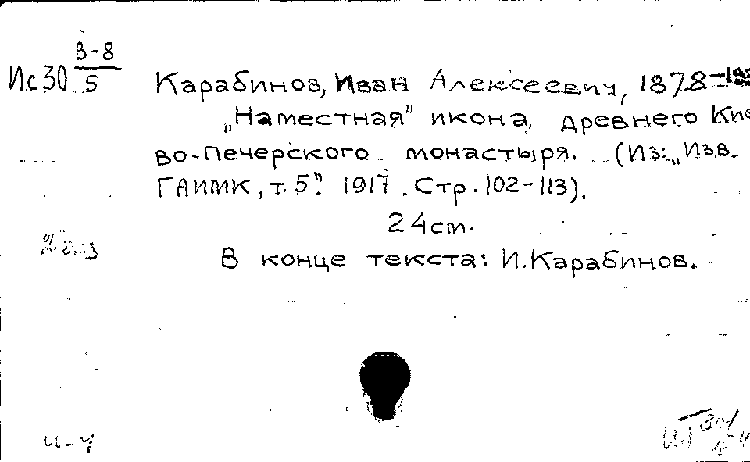 В-8
Ис30 5
Карабинов, Иван Алексеевич, 1878-
„Наместная" икона древнего Кие
во-Печерского монастыря. (Из: „Изв.
ГАИМК, т. 5". 1917. Стр. 102-113).
24см.
2 экз
В конце текста: И. Карабинов.
и-4